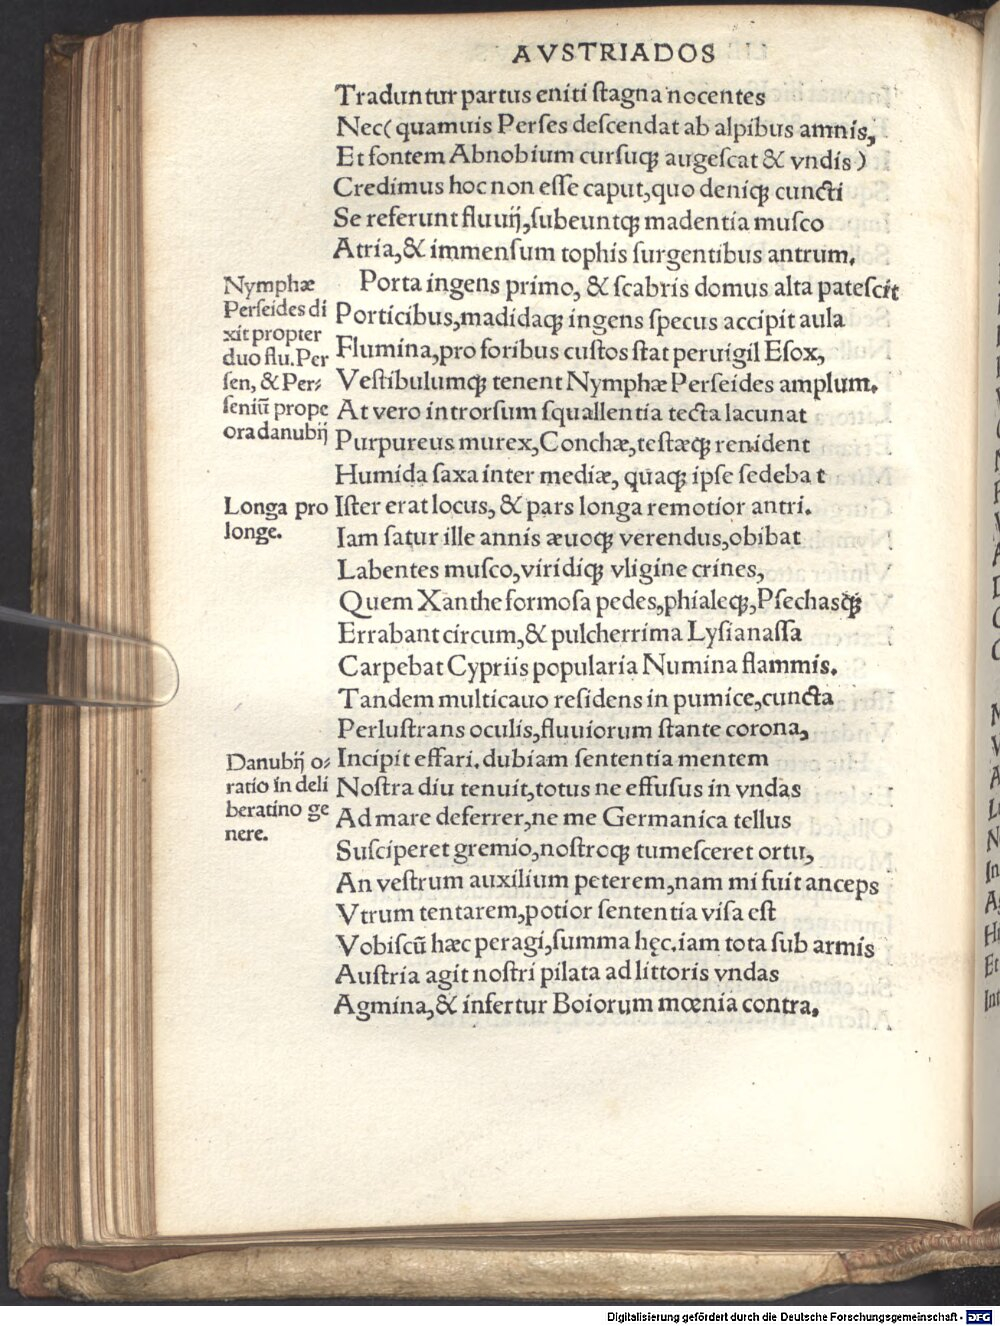 AVSTRIADOS
Traduntur partus eniti ſtagna nocentes
Nec( quamuis Perſes deſcendat ab alpibus amnis,
Et fontem Abnobium curſuqꝫ augeſcat & vndis )
Credimus hoc non eſſe caput,quo deniqꝫ cuncti
Se referunt fluuij,ſubeuntqꝫ madentia muſco
Atria,& immenſum tophis ſurgentibus antrum.
Porta ingens primo, & ſcabris domus alta pateſcit
Porticibus,madidaqꝫ ingens ſpecus accipit aula
Flumina,pro foribus cuſtos ſtat peruigil Eſox,
Veſtibulumqꝫ tenent Nymphæ Perſeides amplum.
At vero introrſum ſquallentia tecta lacunat
Purpureus murex,Conchæ,teſtæqꝫ renident
Humida ſaxa inter mediæ, quaqꝫ ipſe ſedebat
Iſter erat locus, & pars longa remotior antri.
Iam ſatur ille annis æuoqꝫ verendus,obibat
Labentes muſco,viridiqꝫ vligine crines,
Quem Xanthe formoſa pedes,phialeqꝫ,Pſechasqꝫ
Errabant circum,& pulcherrima Lyſianaſſa
Carpebat Cypriis popularia Numina flammis.
Tandem multicauo reſidens in pumice,cuncta
Perluſtrans oculis,fluuiorum ſtante corona,
Incipit effari. dubiam ſententia mentem
Noſtra diu tenuit,totus ne effuſus in vndas
Ad mare deferrer,ne me Germanica tellus
Suſciperet gremio,noſtroqꝫ tumeſceret ortu,
An veſtrum auxilium peterem,nam mi fuit anceps
Vtrum tentarem,potior ſententia viſa eſt
Vobiſcū hæc peragi,ſumma hęc.iam tota ſub armis
Auſtria agit noſtri pilata ad littoris vndas
Agmina,& infertur Boiorum mœnia contra.
Nymphæ
Perſeides di
xit propter
duo flu.Per
ſen, & Per⸗
ſeniū prope
ora danubij
Longa pro
longe.
Danubij o⸗
ratio in deli
beratino ge
nere.
Digitalisierung gefördert durch die Deutsche Forschungsgemeinschaft - DFG